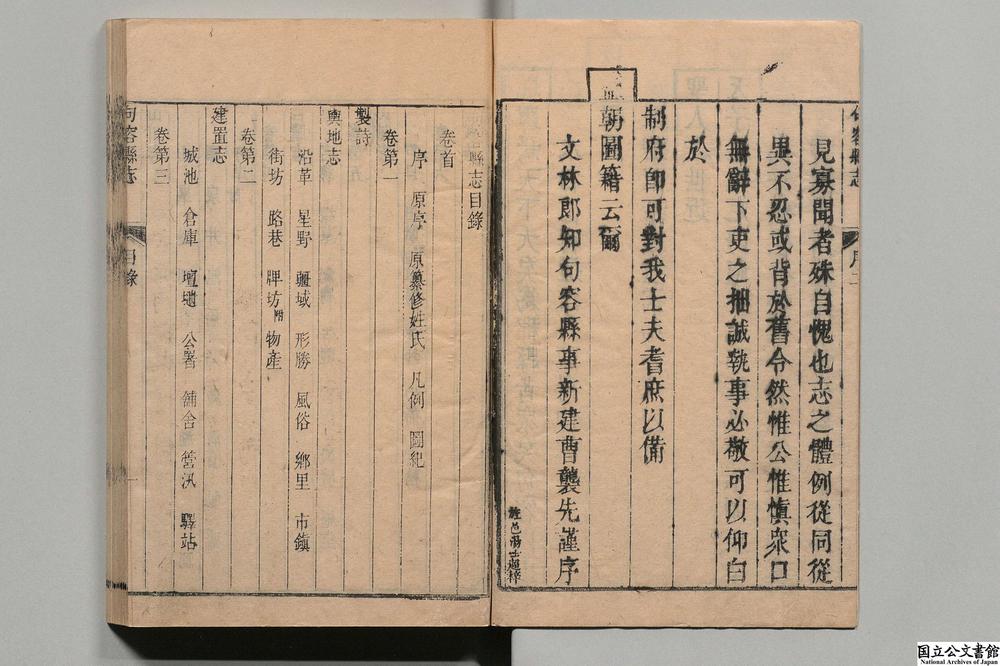 句容縣志
見寡聞者殊自愧也志之體例從同從
異不忍或背於舊令然惟公惟慎衆口
無辭下吏之抽誠執事必敬可以仰白
於
制府卽可對我士夫耆庶以備
朝圖籍云爾
文林郎知句容縣事新建曹襲先謹序
句容縣志目錄
卷首
序 原序 原纂修姓氏 凡例 圖紀
卷第一
製詩
輿地志
沿革 星野 疆域 形勝 風俗 鄉里 市鎮
街坊 路巷 牌坊附 物產
卷第二
建置志
城池 倉庫 壇壝 公署 舖舍 營汛 驛站
卷第三
句容縣志 目錄 一
国立公文書館
National Archives of Japan